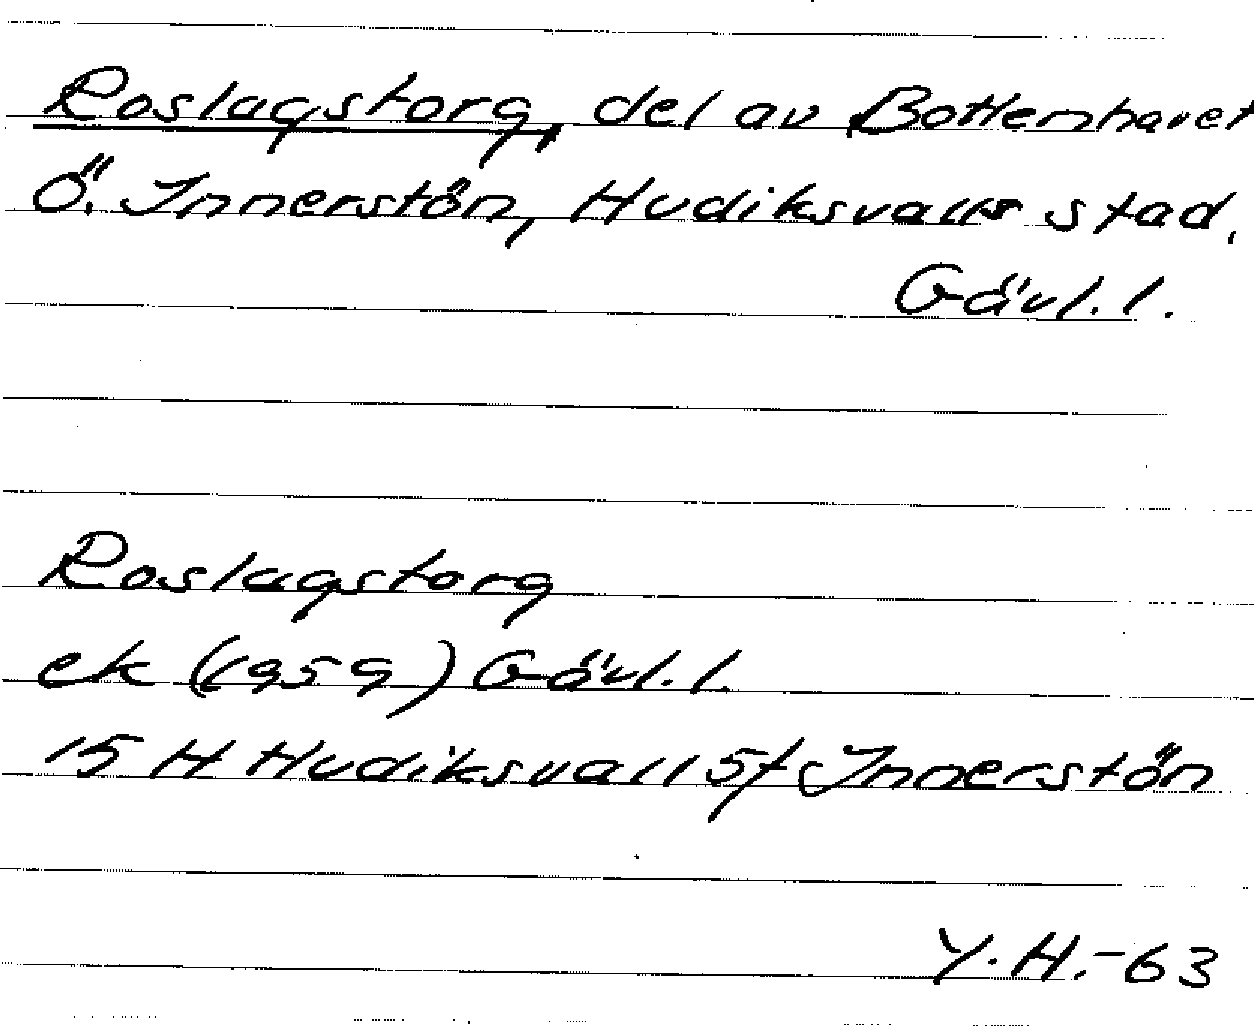 Roslagstorg, del av Bottenhavet
Ö. Innerstön, Hudiksvalls stad,
Gävl. l.
Roslagstorg
ek (1959) Gävl. l.
15 H Hudiksvall 5f Innerstön
Y.H.-63